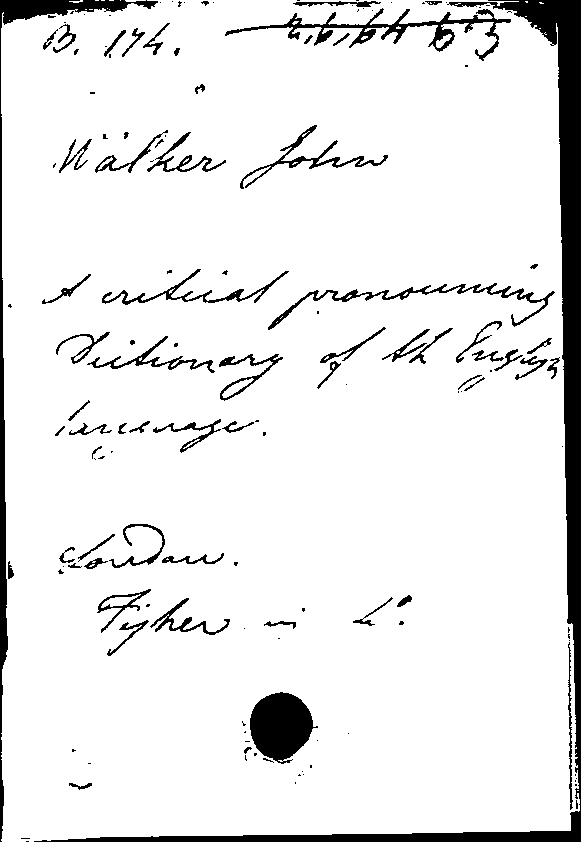 B. 174.
Walker John
A critical pronouncing
Dictionary of th English
language.
London.
Fisher in 4°.